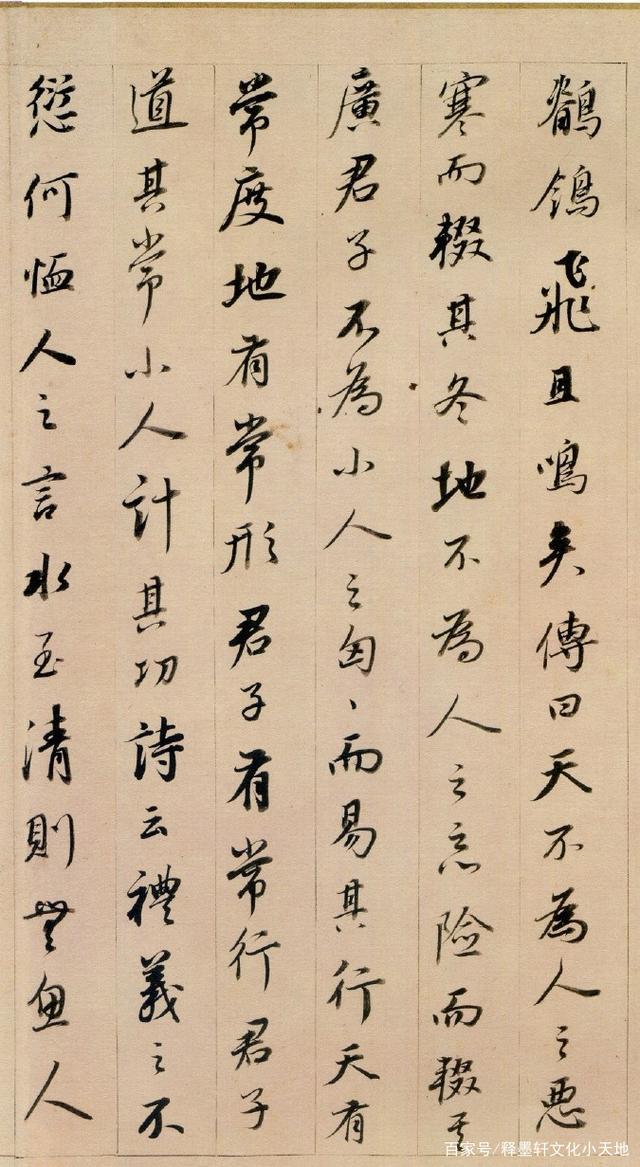 鶺鴒飛且鳴矣傳曰天不為人之惡
寒而輟其冬地不為人之惡險而輟其
廣君子不為小人之匈、而易其行天有
常度地有常形君子有常行君子
道其常小人計其功詩云禮義之不
愆何恤人之言水至清則無魚人
百家号/释墨轩文化小天地